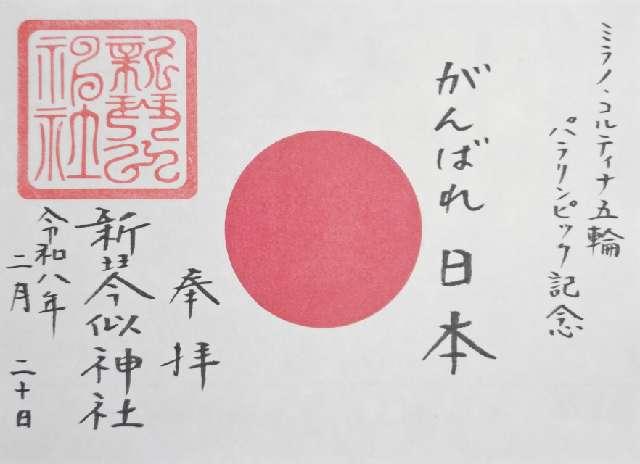 ミラノ・コルティナ五輪
パラリンピック記念
がんばれ 日本
奉拝
新琴似神社
令和八年
二月 二十日
新琴似
神社